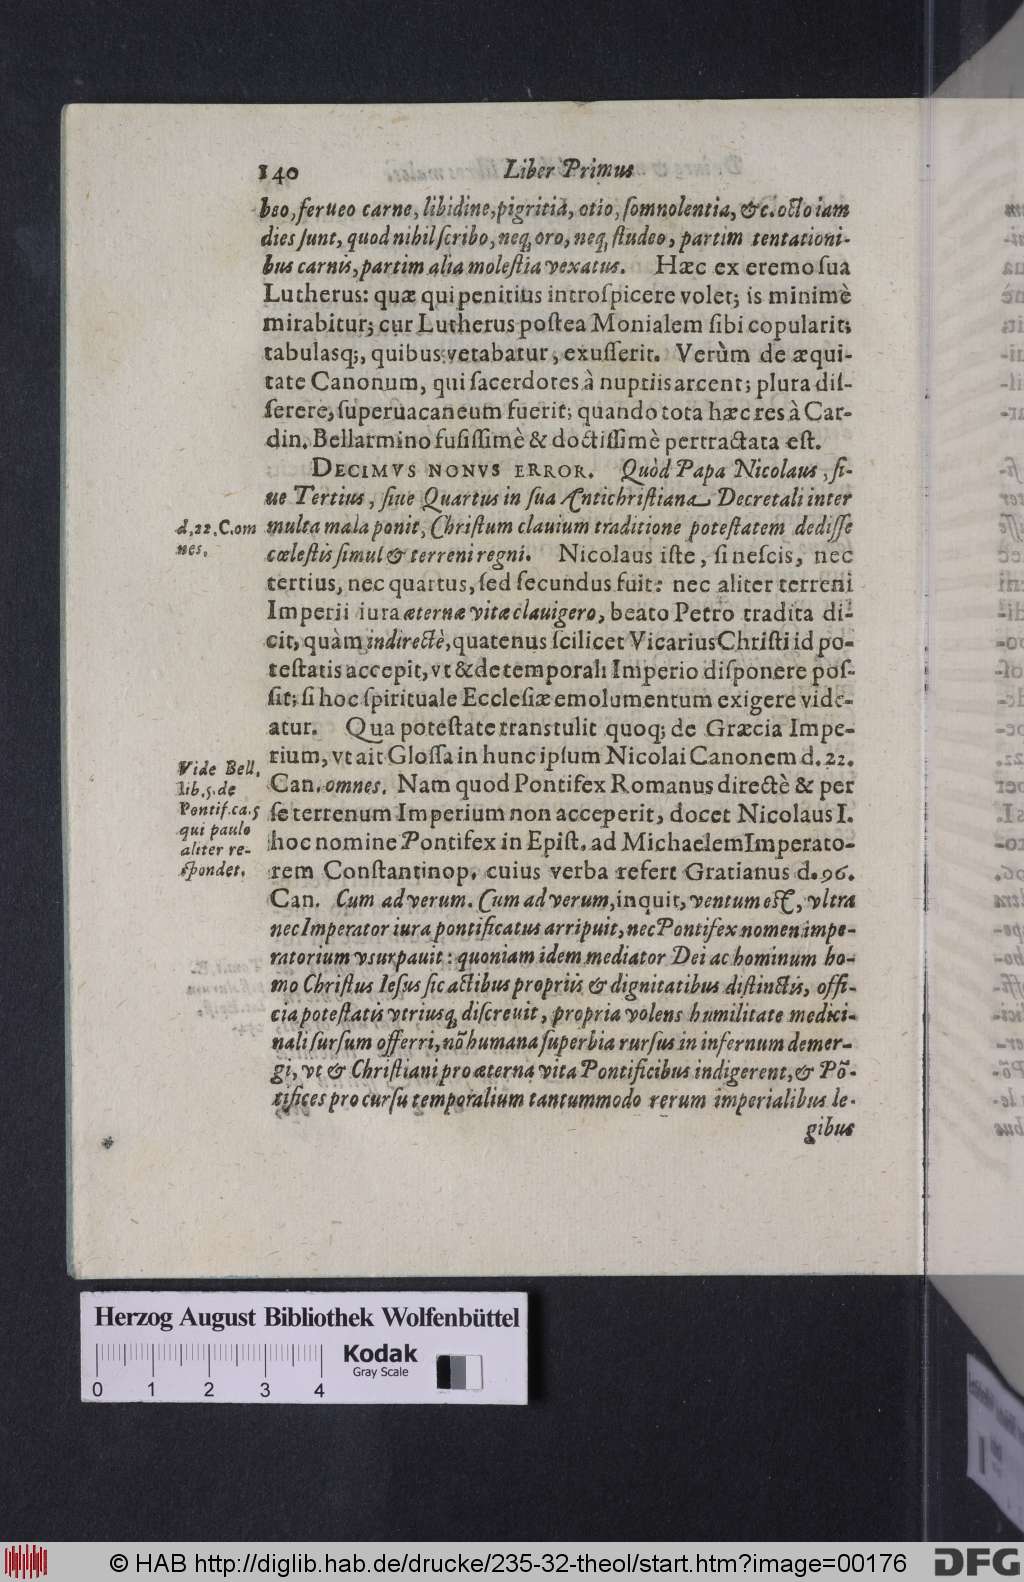 140 Liber Primus
beo, ferueo carne, libidine, pigritia, otio, ſomnolentia, &c. octo iam
dies ſunt, quod nihil ſcribo, neq; oro, neq; ſtudeo, partim tentationi-
bus carnis, partim alia moleſtia vexatus. Hæc ex eremo ſua
Lutherus: quæ qui penitius introſpicere volet; is minimè
mirabitur; cur Lutherus poſtea Monialem ſibi copularit;
tabulasq;, quibus vetabatur, exuſſerit. Verùm de æqui-
tate Canonum, qui ſacerdotes à nuptiis arcent; plura diſ-
ſerere, ſuperuacaneum fuerit; quando tota hæc res à Car-
din. Bellarmino fuſiſſimè & doctiſſimè pertractata eſt.
DECIMVS NONVS ERROR. Quòd Papa Nicolaus, ſi-
ue Tertius, ſiue Quartus in ſua Antichriſtiana Decretali inter
d. 22. C. om
nes.
multa mala ponit, Chriſtum clauium traditione poteſtatem dediſſe
cœleſtis ſimul & terreni regni. Nicolaus iſte, ſi neſcis, nec
tertius, nec quartus, ſed ſecundus fuit: nec aliter terreni
Imperii iura æternæ vitæ clauigero, beato Petro tradita di-
cit, quàm indirectè, quatenus ſcilicet Vicarius Chriſti id po-
teſtatis accepit, vt & de temporali Imperio diſponere poſ-
ſit; ſi hoc ſpirituale Eccleſiæ emolumentum exigere vide-
atur. Qua poteſtate transtulit quoq; de Græcia Impe-
rium, vt ait Gloſſa in hunc ipſum Nicolai Canonem d. 22.
Vide Bell.
lib. 5. de
Pontif. ca. 5
qui paulo
aliter re-
ſpondet.
Can. omnes. Nam quod Pontifex Romanus directè & per
ſe terrenum Imperium non acceperit, docet Nicolaus I.
hoc nomine Pontifex in Epiſt. ad Michaelem Imperato-
rem Conſtantinop. cuius verba refert Gratianus d. 96.
Can. Cum ad verum. Cum ad verum, inquit, ventum eſt, vltra
nec Imperator iura pontificatus arripuit, nec Pontifex nomen impe-
ratorium vsurpauit: quoniam idem mediator Dei ac hominum ho-
mo Chriſtus Ieſus ſic actibus propriis & dignitatibus diſtinctis, offi-
cia poteſtatis vtriusq; diſcreuit, propria volens humilitate medici-
nali ſurſum offerri, nõ humana ſuperbia rurſus in infernum demer-
gi, vt & Chriſtiani pro æterna vita Pontificibus indigerent, & Põ-
tifices pro curſu temporalium tantummodo rerum imperialibus le-
gibus
Herzog August Bibliothek Wolfenbüttel
Kodak
Gray Scale
0 1 2 3 4
© HAB http://diglib.hab.de/drucke/235-32-theol/start.htm?image=00176
DFG